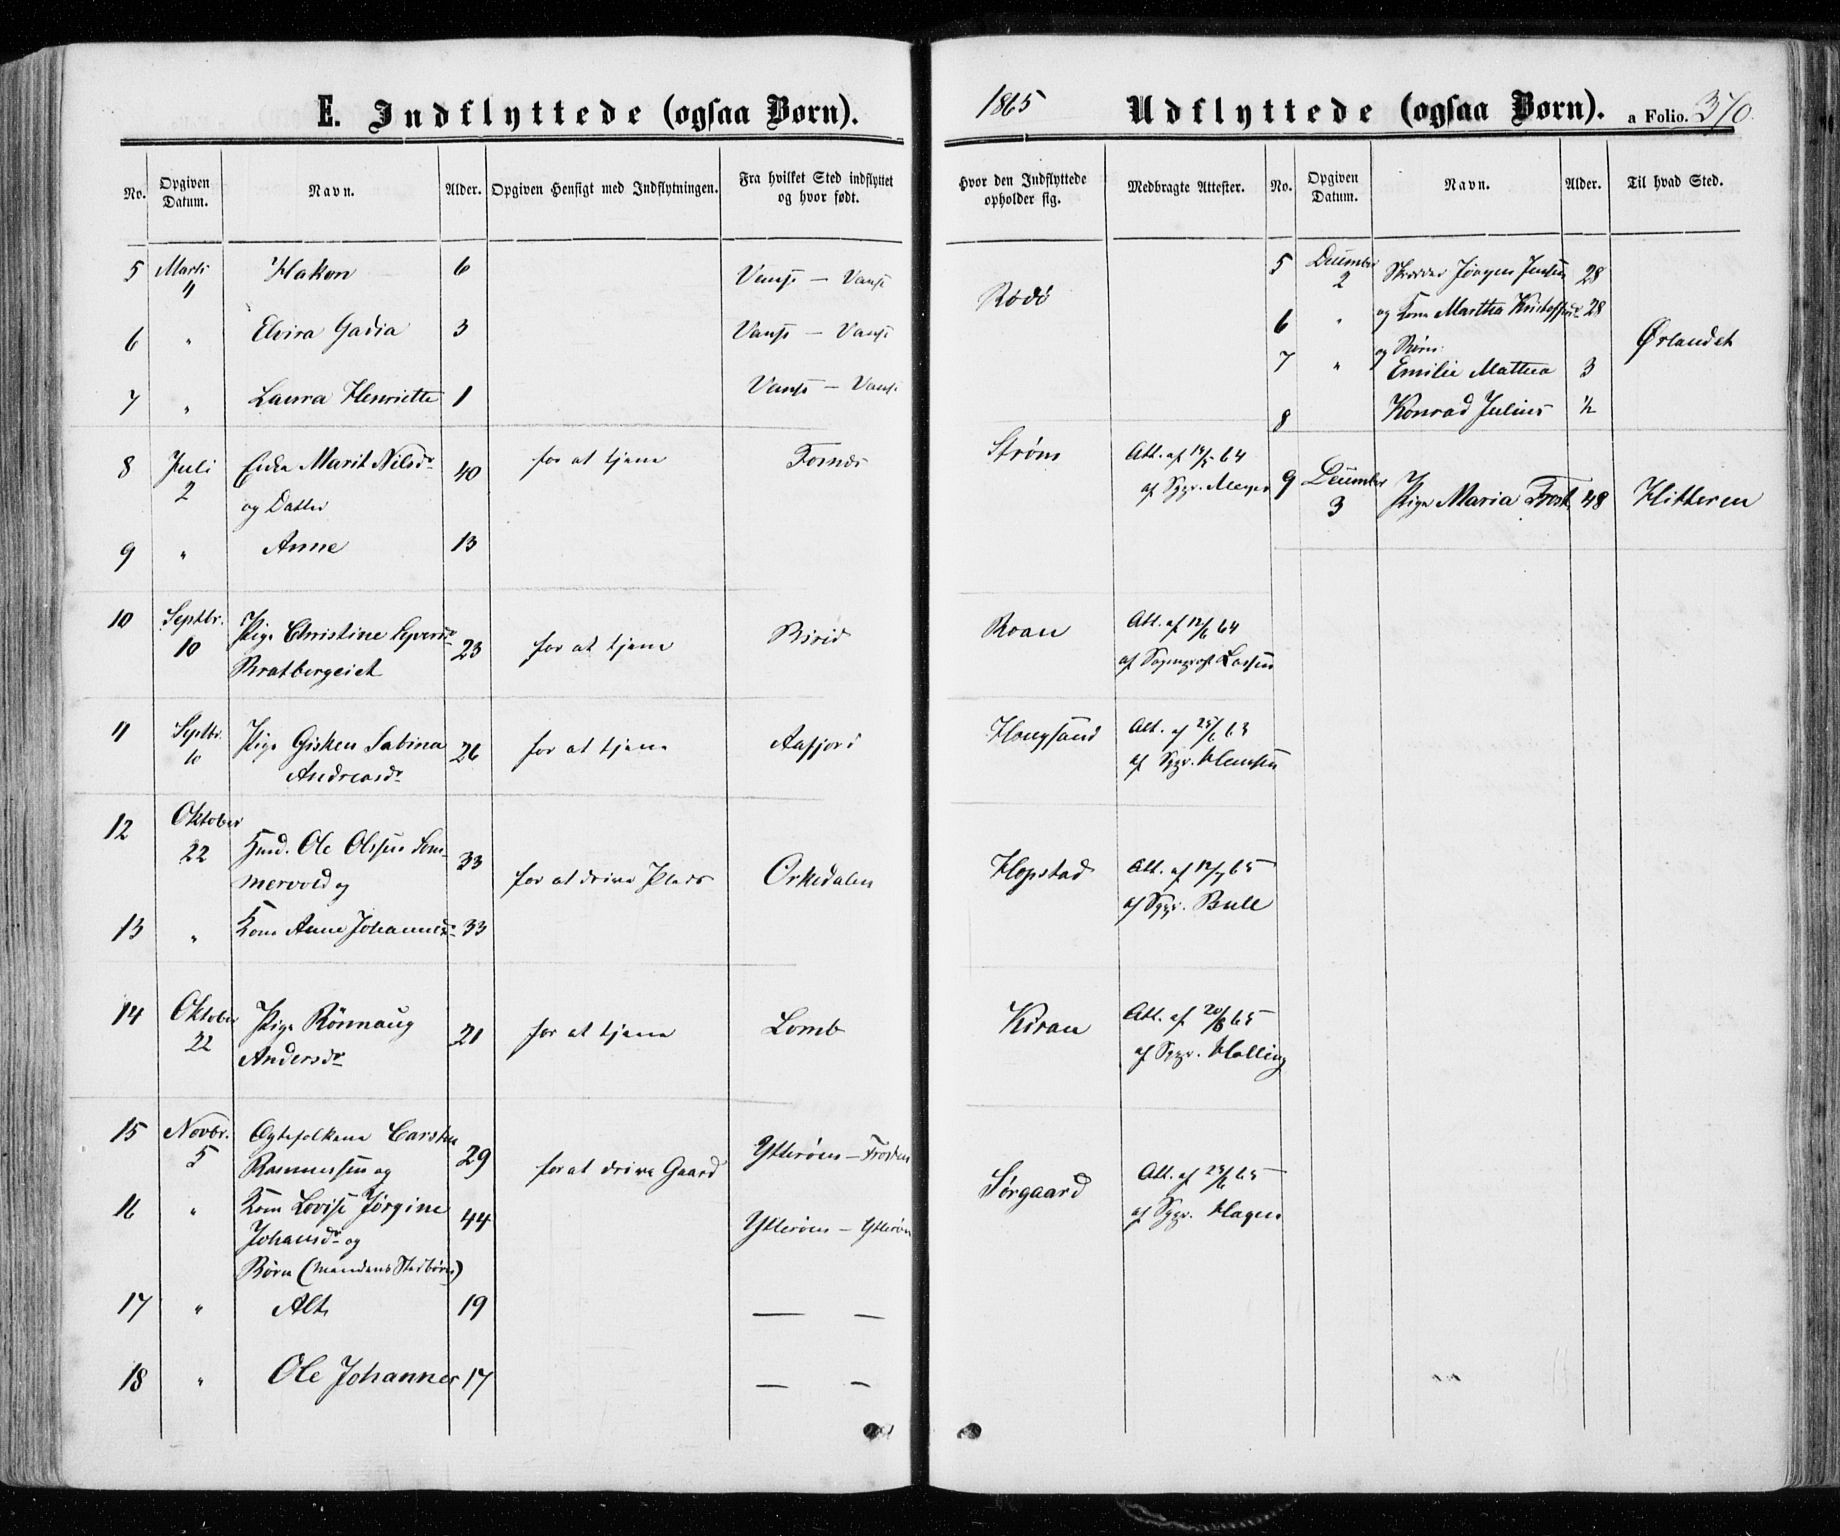 E. Indflyttede (ogsaa Børn).
No. Opgiven Datum. Navn. Alder. Opgiven Hensigt med Indflytningen. Fra hvilket Sted indflyttet og hvor født.
5 Marts 4 Hakon 6 Vanse — Vanse
6 " Elvira Gadia 3 Vanse — Vanse
7 " Laura Henriette 1 Vanse — Vanse
8 Juli 2 Enke Marit Nilsdr 40 for at tjene Fosnæs
og Datter
9 " Anne 13
10 Septbr. 10 Pige Christine Syversdr 23 for at tjene Birid
Bratbergeiet
11 Septbr. 10 Pige Gisken Sabina 26 for at tjene Aafjord
Andreasdr
12 Oktober 22 Husmd. Ole Olssen Som- 33 for at drive Plads Orkedalen
mervold og
13 " Kone Anne Johannesdr 33
14 Oktober 22 Pige Rönnaug 21 for at tjene Lomb
Andersdr
15 Novbr. 5 Ægtefolkene Carsten 29 for at drive Gaard Ytterøen — Frosten
Rasmussen og
16 " Kone Lovise Jørgine 44 Ytterøen — Ytterøen
Johansdr og
Børn (Mandens Stedbørn)
17 " Alt 19 — —
18 " Ole Johannes 17 — —
1865
Udflyttede (ogsaa Børn). a Folio. 370.
Hvor den Indflyttede opholder sig. Medbragte Attester. No. Opgiven Datum. Navn. Alder. Til hvad Sted.
Rödö
Strøm Att. af 14/5 64
af Sgpr. Meyer
Roan Att. af 12/6 64
af Sogneprst Lassen
Hougsand Att. af 25/6 63
af Sgpr. Hansen
Hopstad Att. af 12/7 65
af Sgpr. Bull
Kiran Att. af 20/8 65
af Sgpr. Halling
Sörgaard Att. af 23/6 65
af Sgpr. Hagen
5 December 2 Skrædder Jörgen Jensen 28 Ørlandet
6 " og Kone Martha Kristoffersdr 28
og Börn
7 " Emilie Mathea 3
8 Konrad Julius 1/2
9 December 3 Pige Maria Frost 48 Hitteren